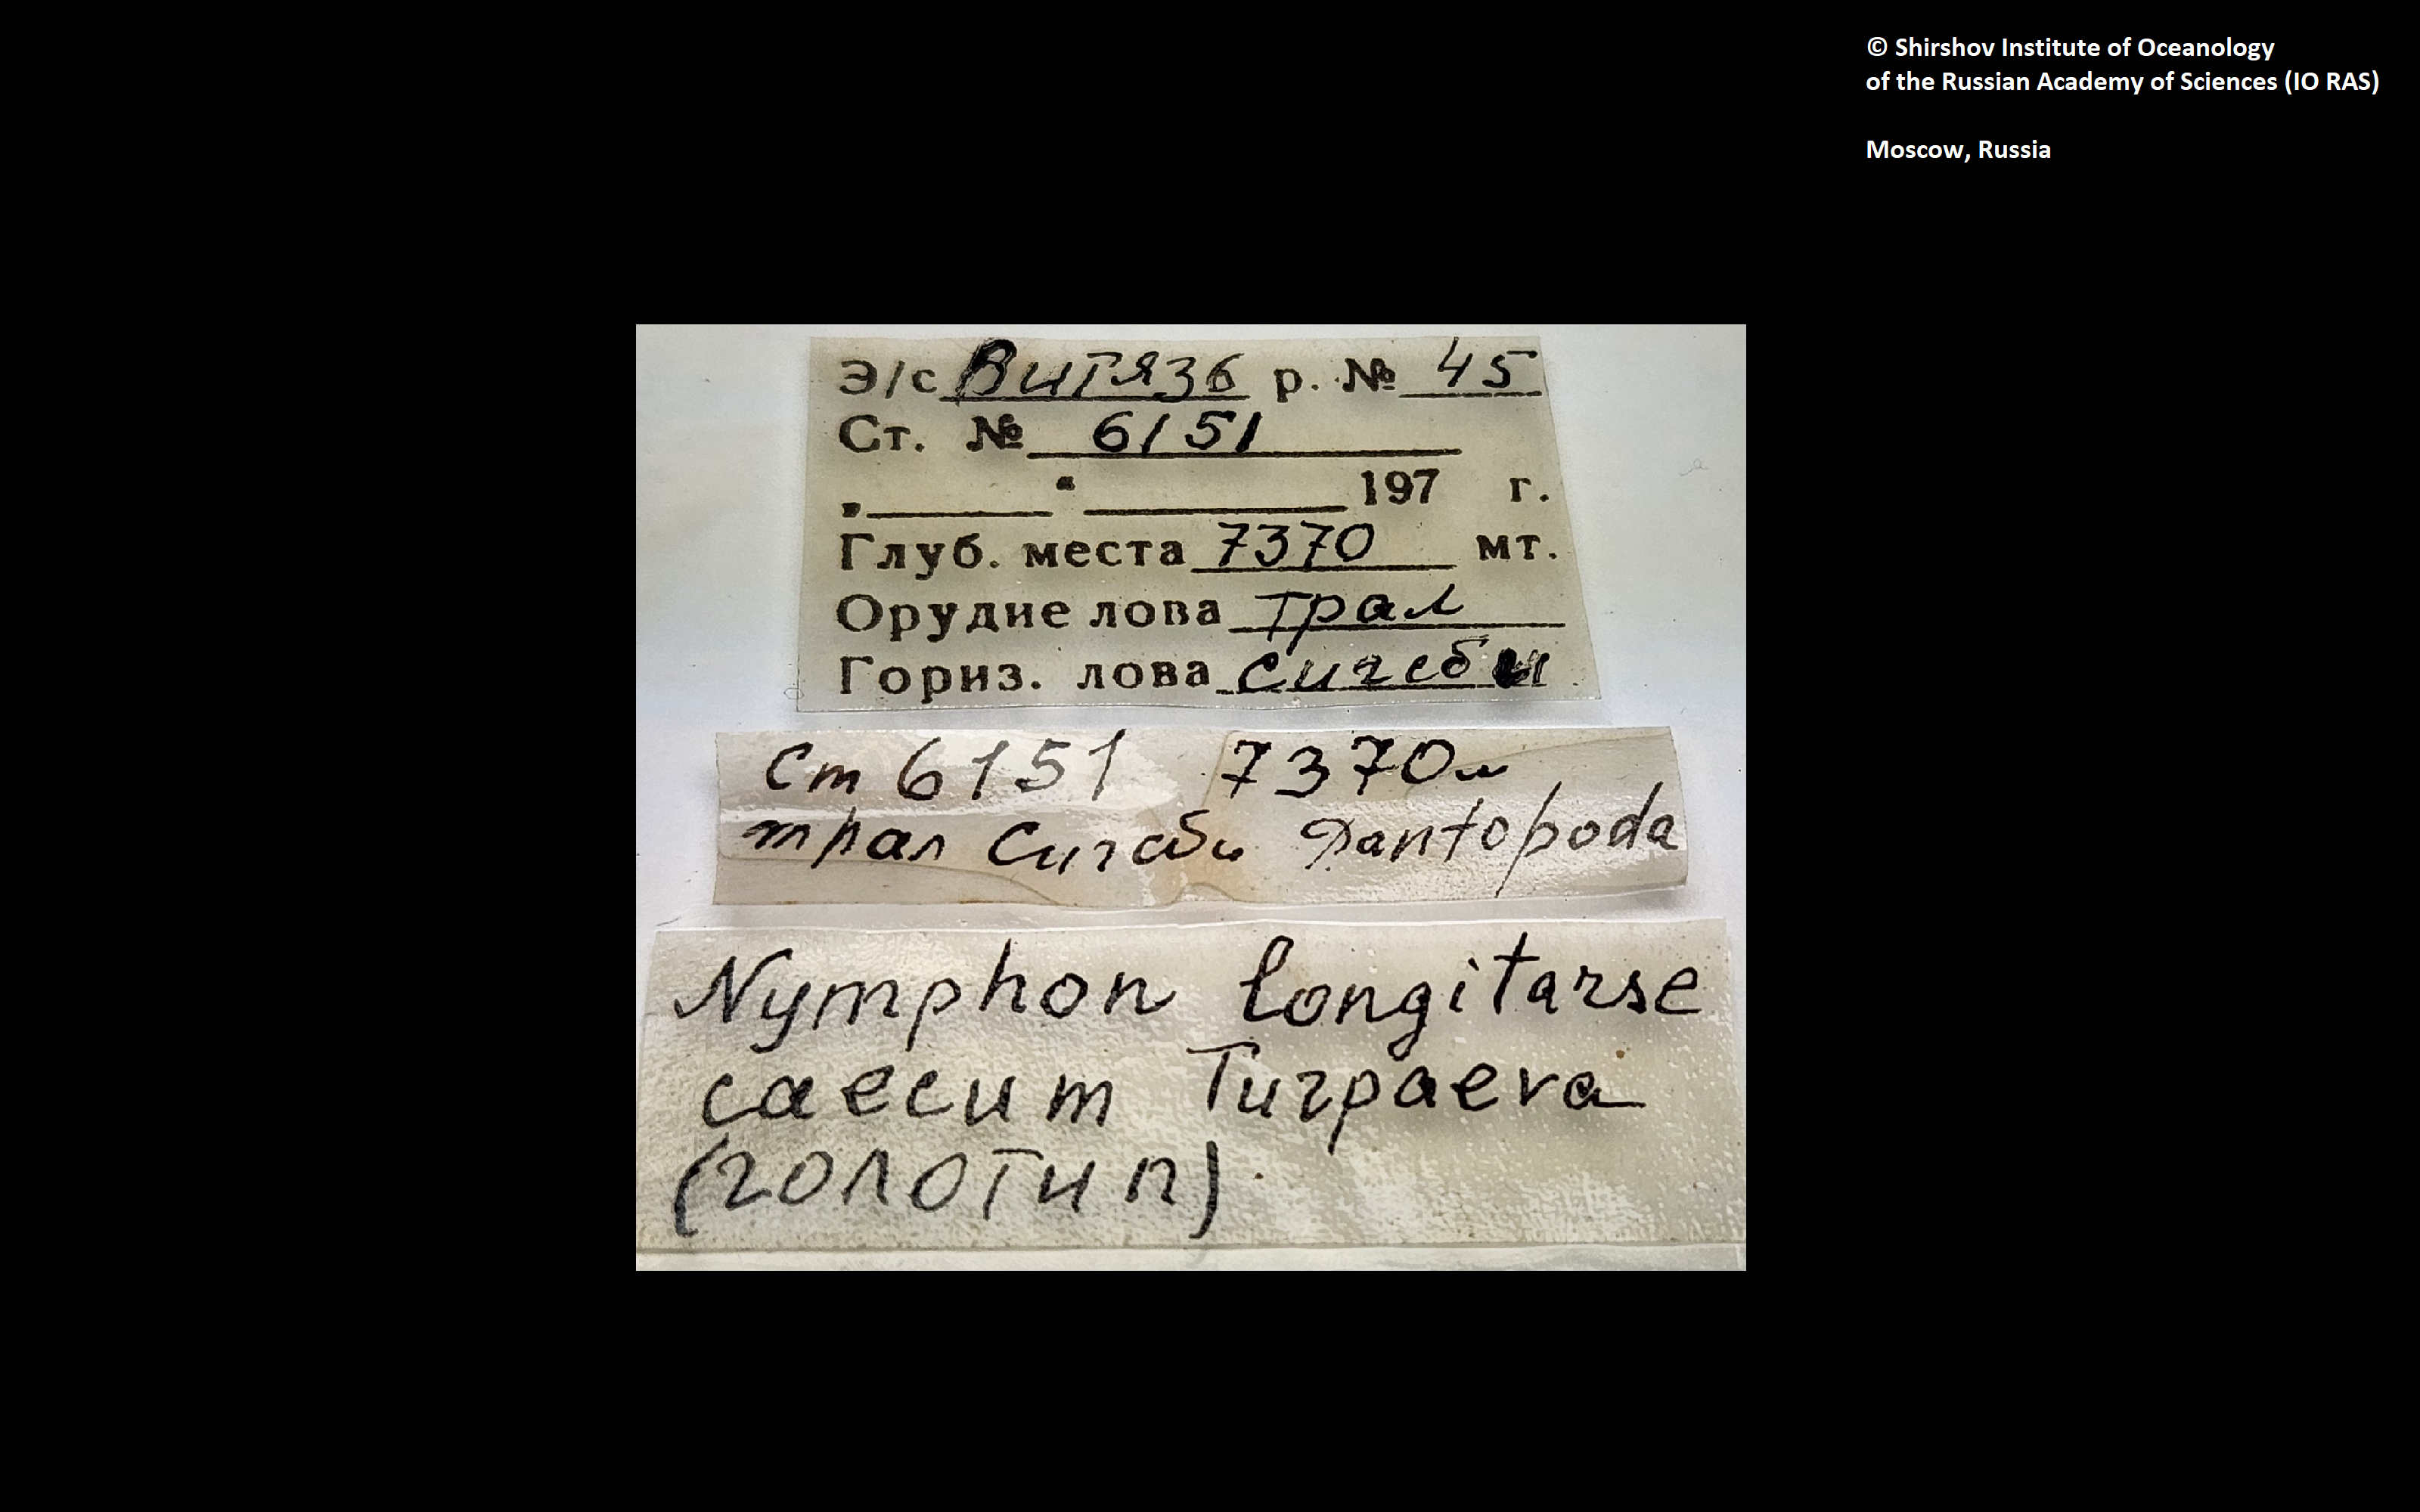 © Shirshov Institute of Oceanology
of the Russian Academy of Sciences (IO RAS)
Moscow, Russia
Э/с Витязь р. № 45
Ст. № 6151
„ “ 197 г.
Глуб. места 7370 мт.
Орудие лова трал
Гориз. лова сигсби
Ст 6151 7370м
трал Сигсби Pantopoda
Nymphon longitarse
caecum Turpaeva
(голотип)